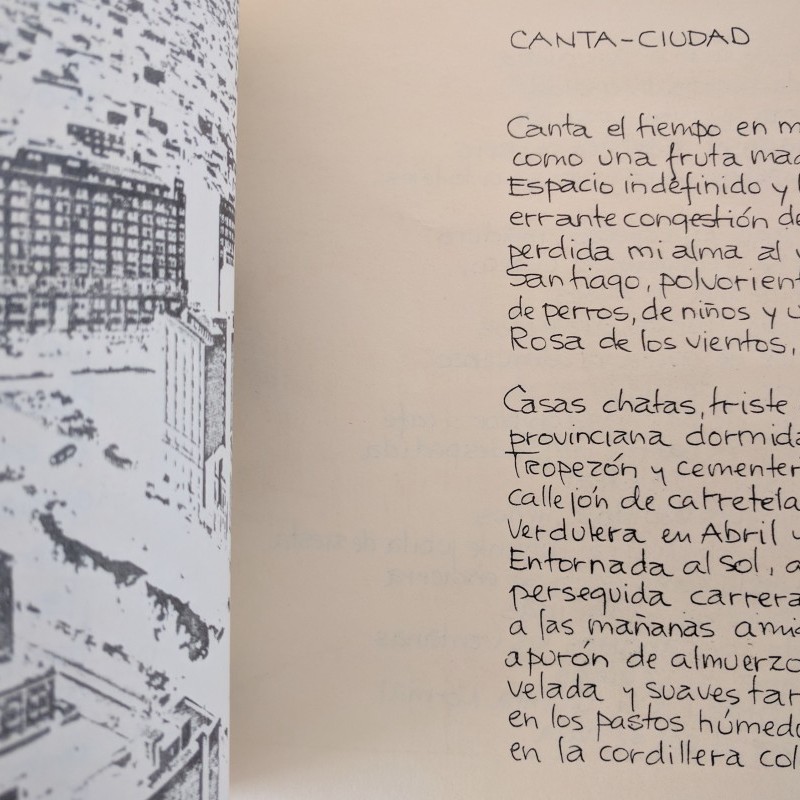 CANTA-CIUDAD
Canta el tiempo en m
como una fruta mad
Espacio indefinido y l
errante congestión de
perdida mi alma al v
Santiago, polvorient
de perros, de niños y u
Rosa de los vientos,
Casas chatas, triste
provinciana dormida
Tropezón y cementer
callejón de carretela
Verdulera en Abril y
Entornada al sol, a
perseguida carrera
a las mañanas ami
apurón de almuerzo
velada y suaves tar
en los pastos húmedo
en la cordillera col